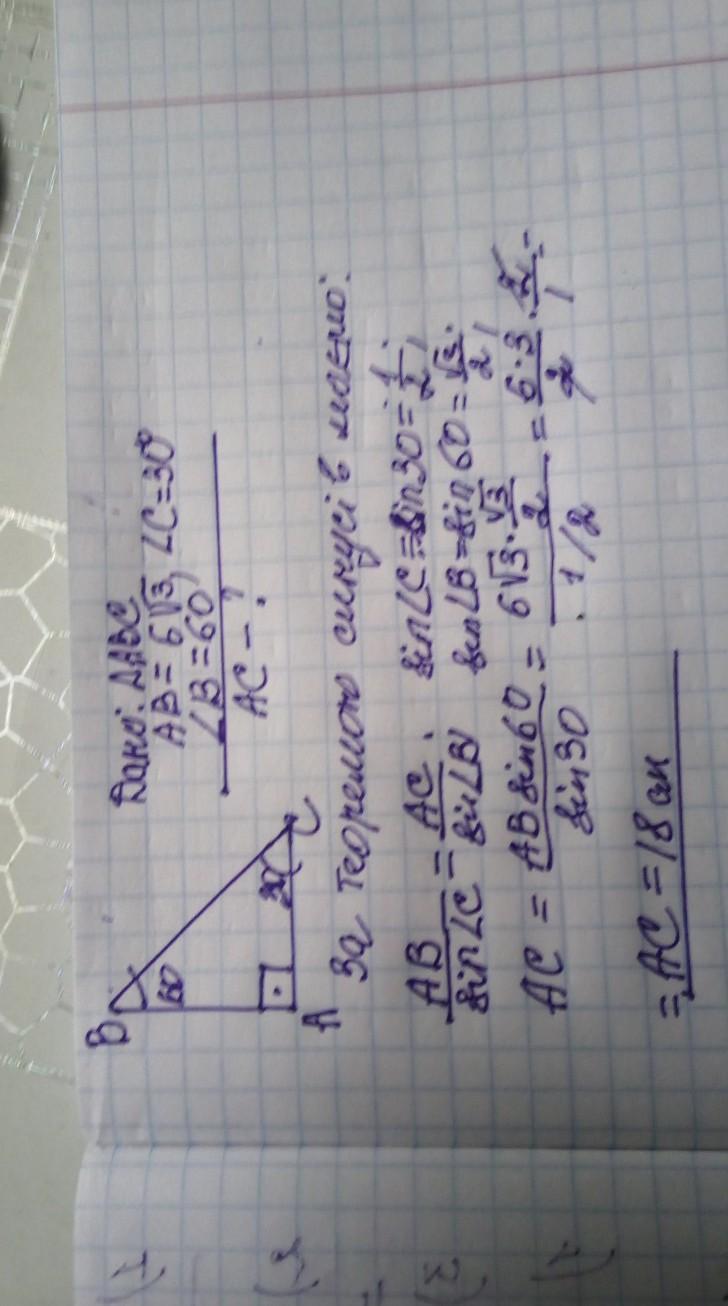 Дано: ΔABC
AB = 6√3, ∠C=30°
∠B=60
AC – ?
B
60
30
A
C
За теоремою синусів маємо:
AB/sin∠C = AC/sin∠B. sin∠C=sin30=1/2;
sin∠B=sin60=√3/2;
AC = AB sin60/sin30 = 6√3·√3/2 / 1/2 = 6·3/2 · 2/1 =
= AC = 18 см
1)
2)